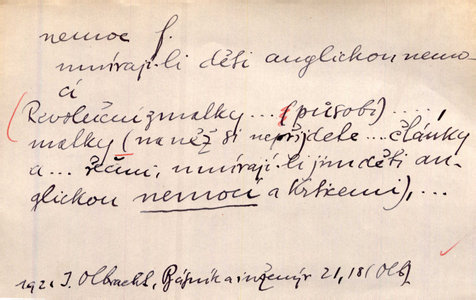 nemoc f.
umírají-li děti anglickou nemo-
cí
(Revoluční zmatky ... (působí) ....
matky (na něž si nepřijdete ... články
a ... řečmi, umírají-li jim děti an-
glickou nemocí a krticemi), ...
192 I. Olbracht, Básník a inženýr 21, 18 (Olb)